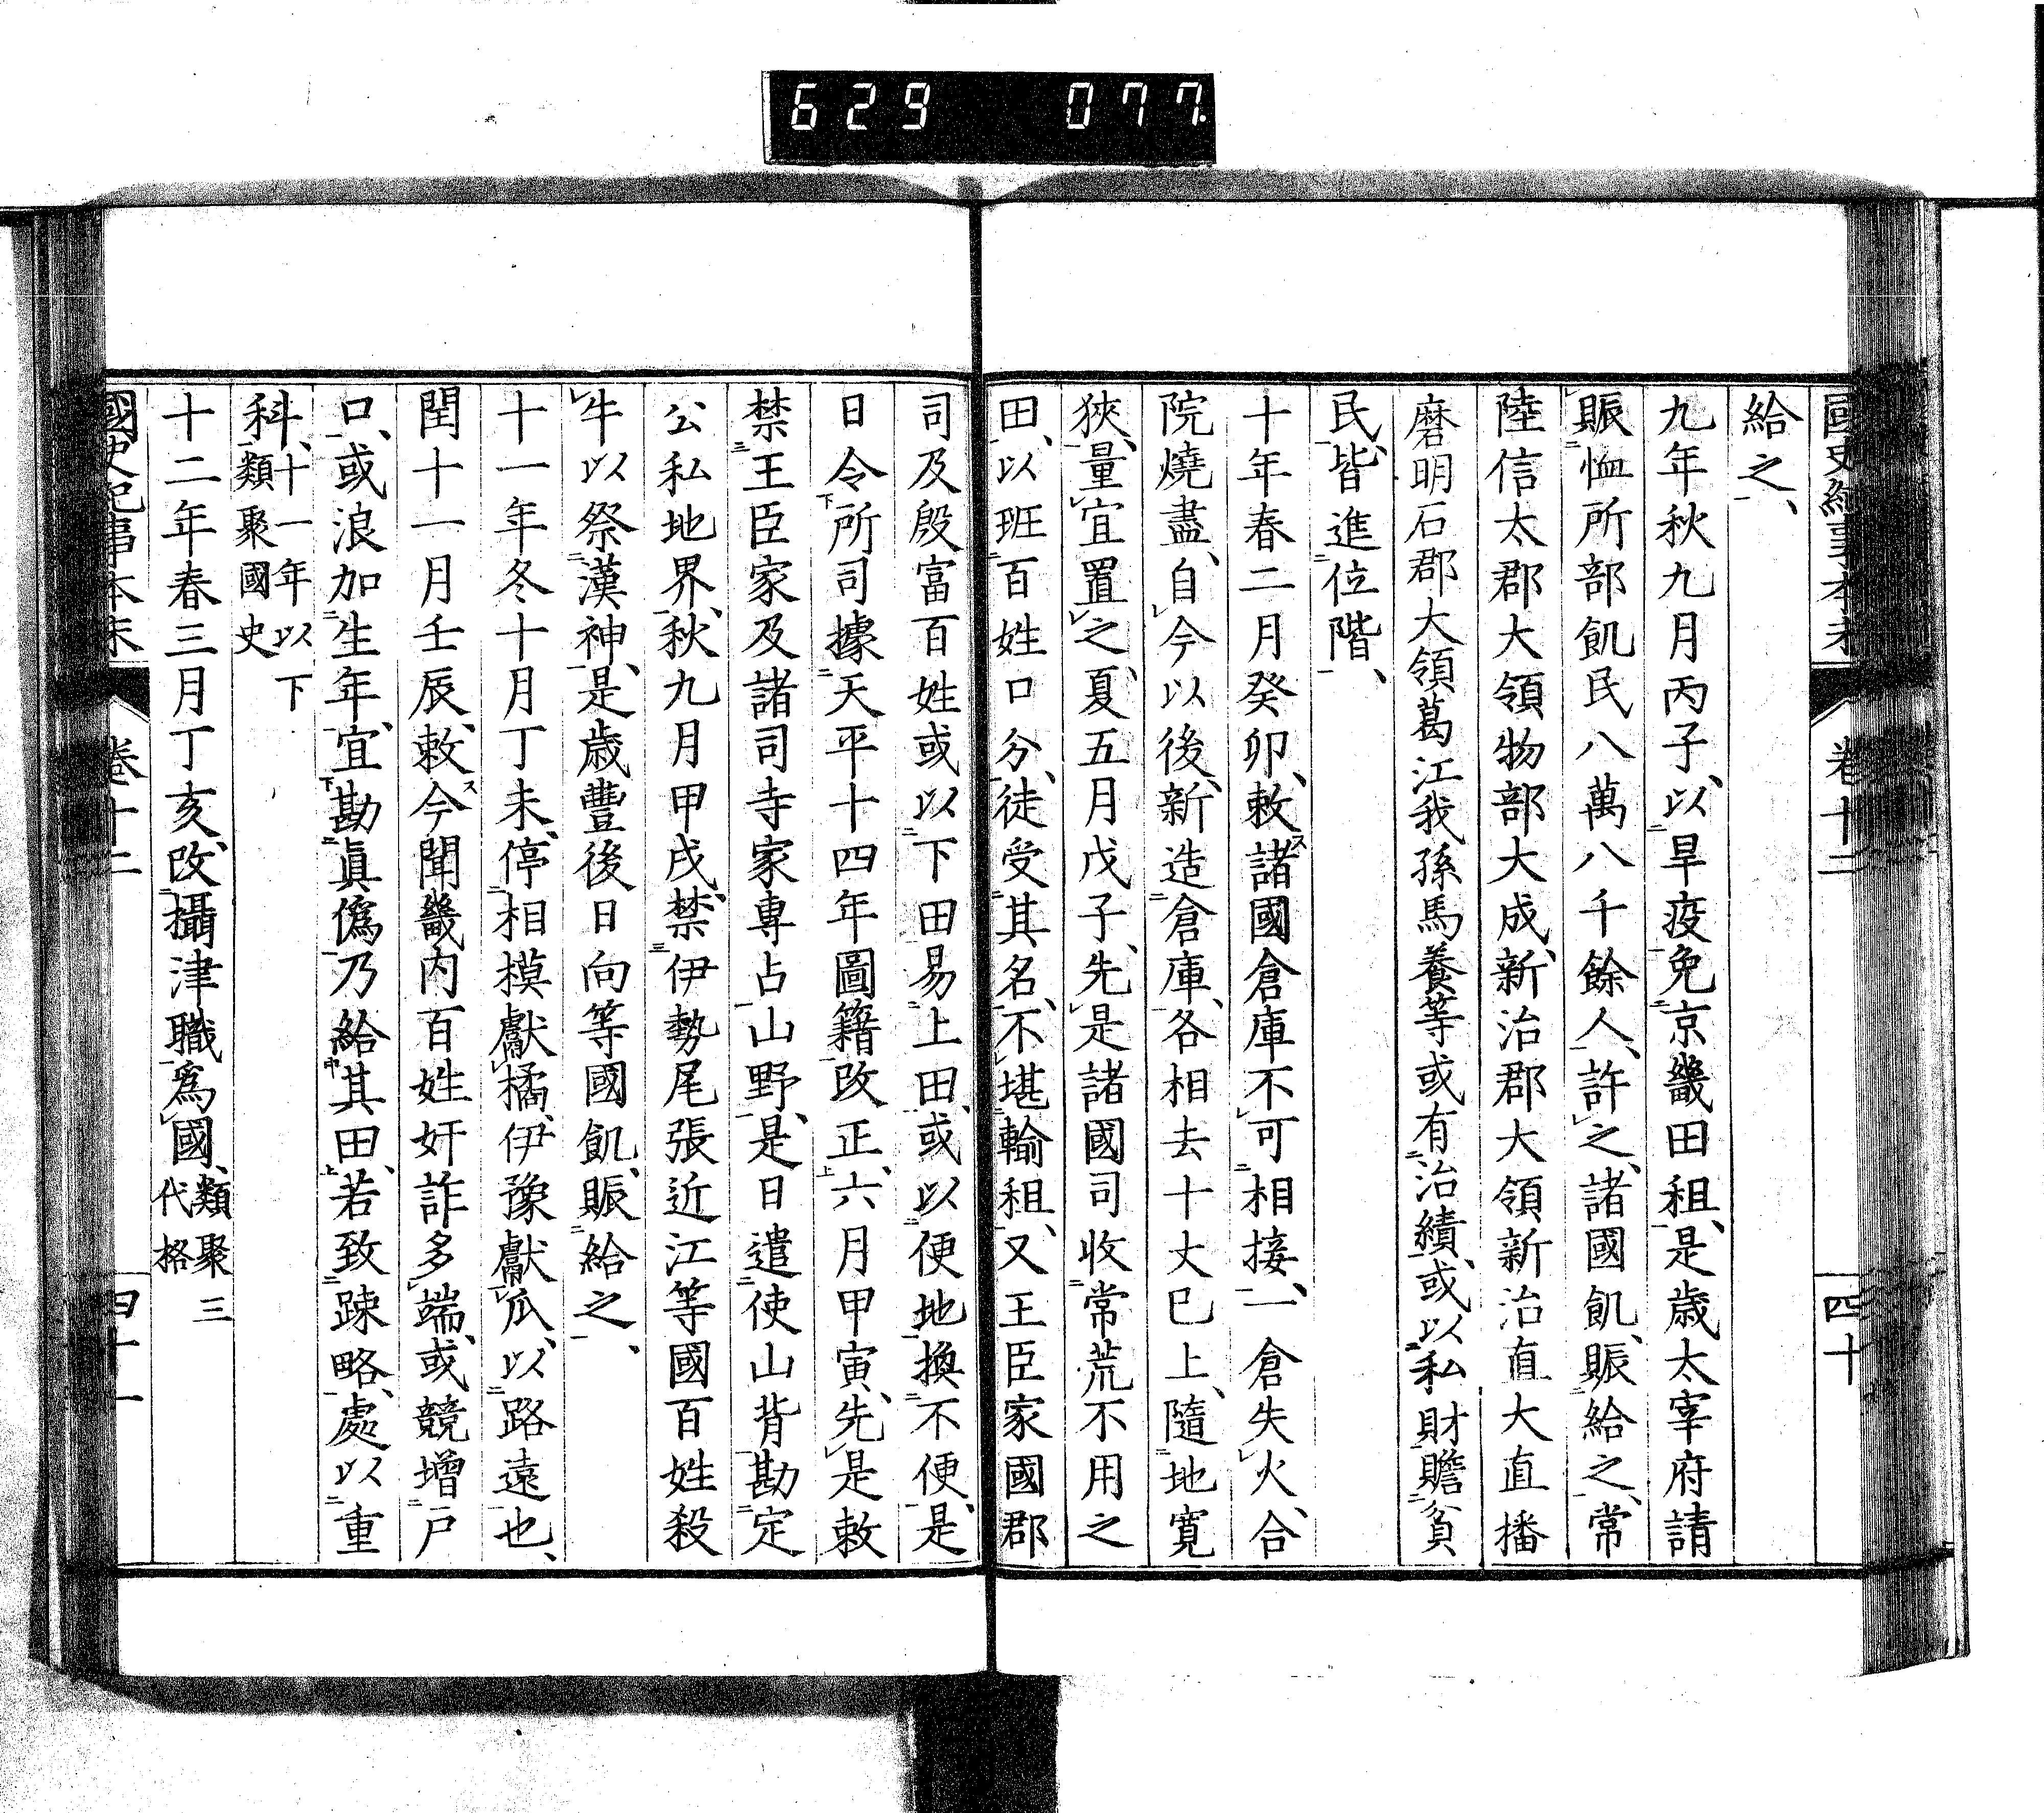 629 077.
國史紀事本末 卷十二 四十
給之、
九年秋九月丙子、以旱疫免京畿田租、是歳太宰府請
賑恤所部飢民八萬八千餘人、許之、諸國飢、賑給之、常
陸信太郡大領物部大成、新治郡大領新治直大直播
磨明石郡大領葛江我孫馬養等或有治績、或以私財贍貧
民、皆進位階、
十年春二月癸卯、敕諸國倉庫不可相接、一倉失火、合
院燒盡、自今以後、新造倉庫、各相去十丈巳上、隨地寛
狹、量宜置之、夏五月戊子、先是諸國司收常荒不用之
田、以班百姓口分、徒受其名、不堪輸租、又王臣家國郡
司及殷富百姓或以下田易上田、或以便地換不便、是
日令所司據天平十四年圖籍改正、六月甲寅、先是敕
禁王臣家及諸司寺家專占山野、是日遣使山背勘定
公私地界、秋九月甲戌、禁伊勢尾張近江等國百姓殺
牛以祭漢神、是歳豐後日向等國飢、賑給之、
十一年冬十月丁未、停相模獻橘、伊豫獻瓜、以路遠也、
閏十一月壬辰、敕今聞畿内百姓奸詐多端、或競增戸
口、或浪加生年、宜勘眞僞、乃給其田、若致踈略、處以重
科、十一年以下類聚國史
十二年春三月丁亥、改攝津職爲國、類聚三代格
國史紀事本末 卷十二 四十一